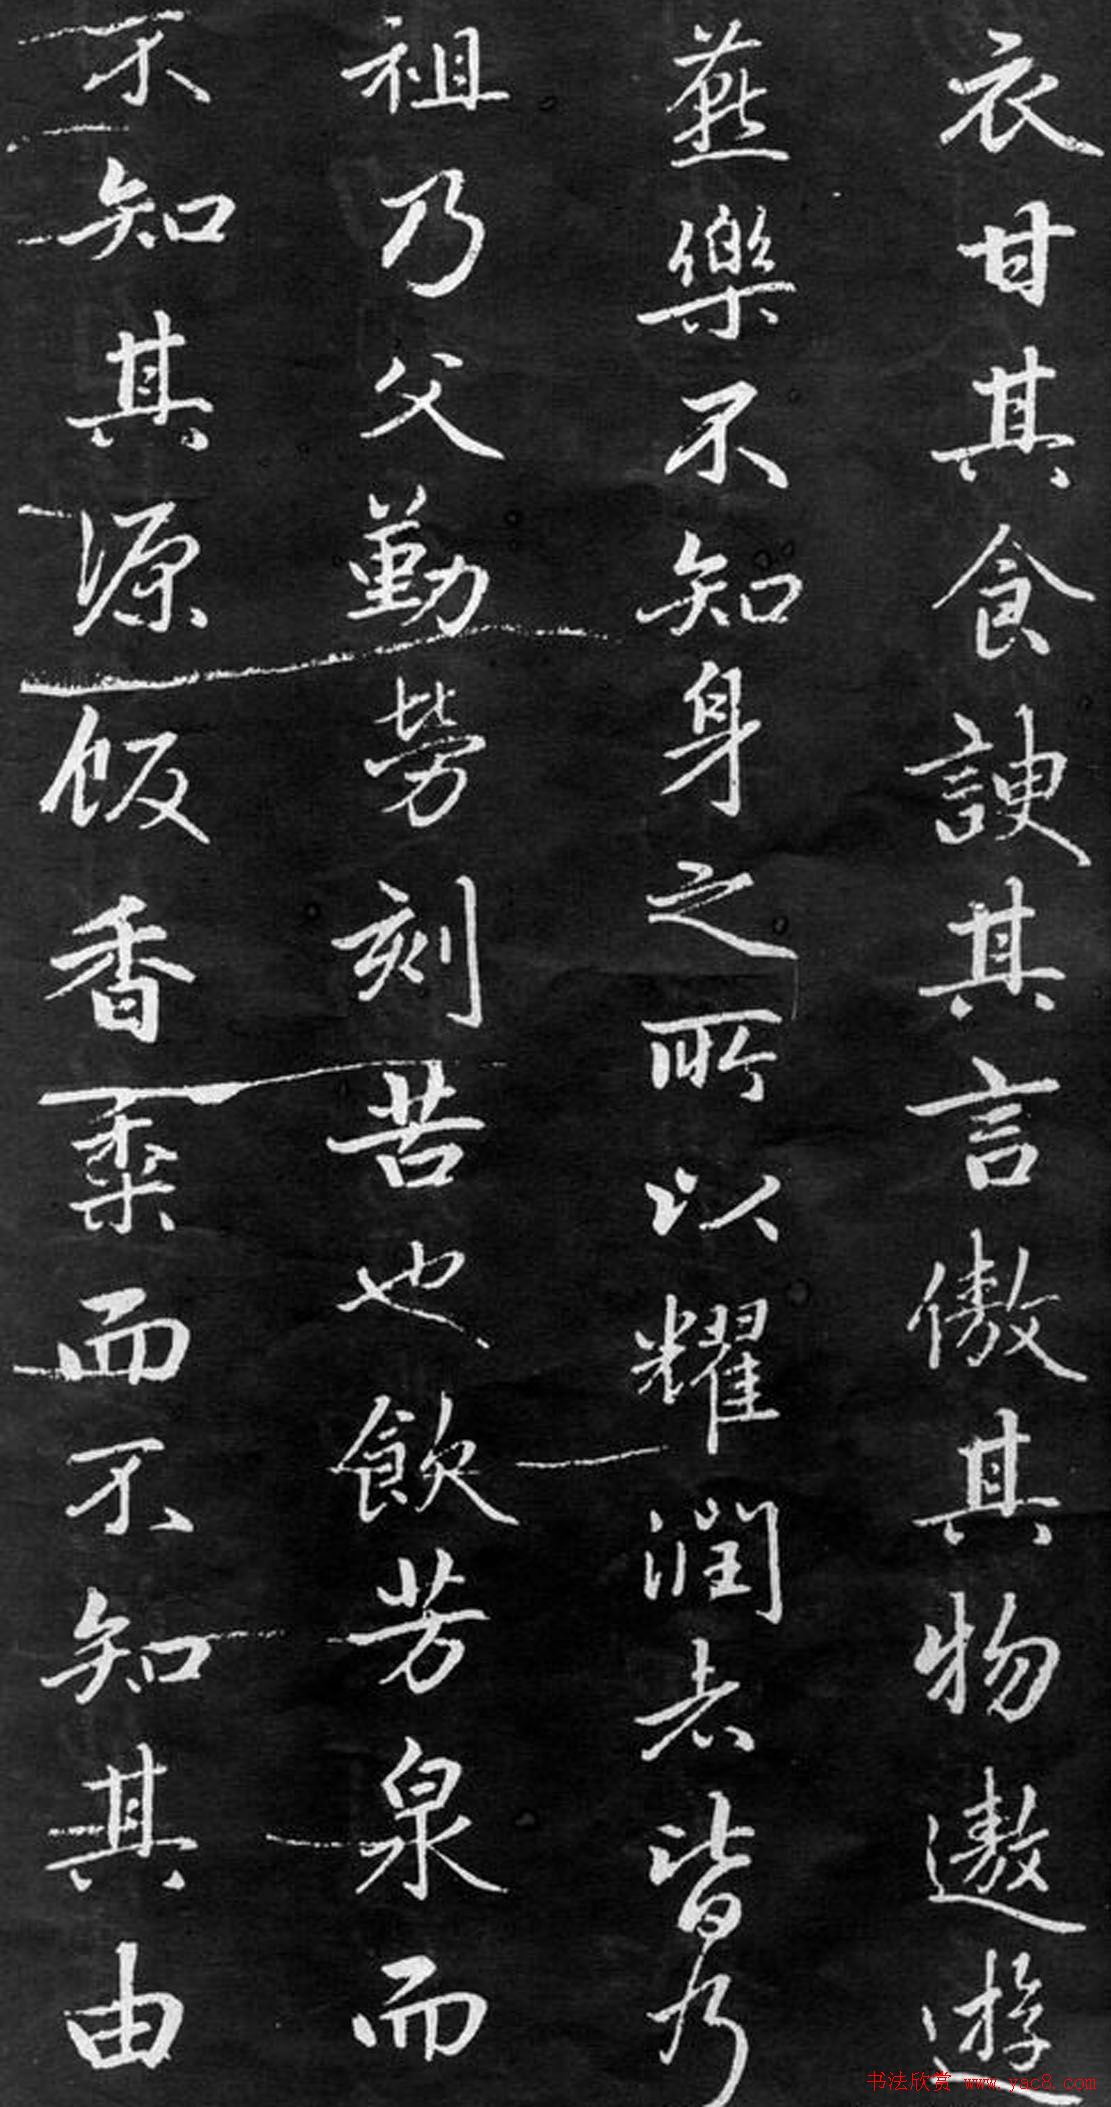 衣甘其食諛其言傲其物遨遊
燕樂不知身之所以耀潤者皆乃
祖乃父勤勞刻苦也飲芳泉而
不知其源飯香黍而不知其由
书法欣赏 www.yac8.com